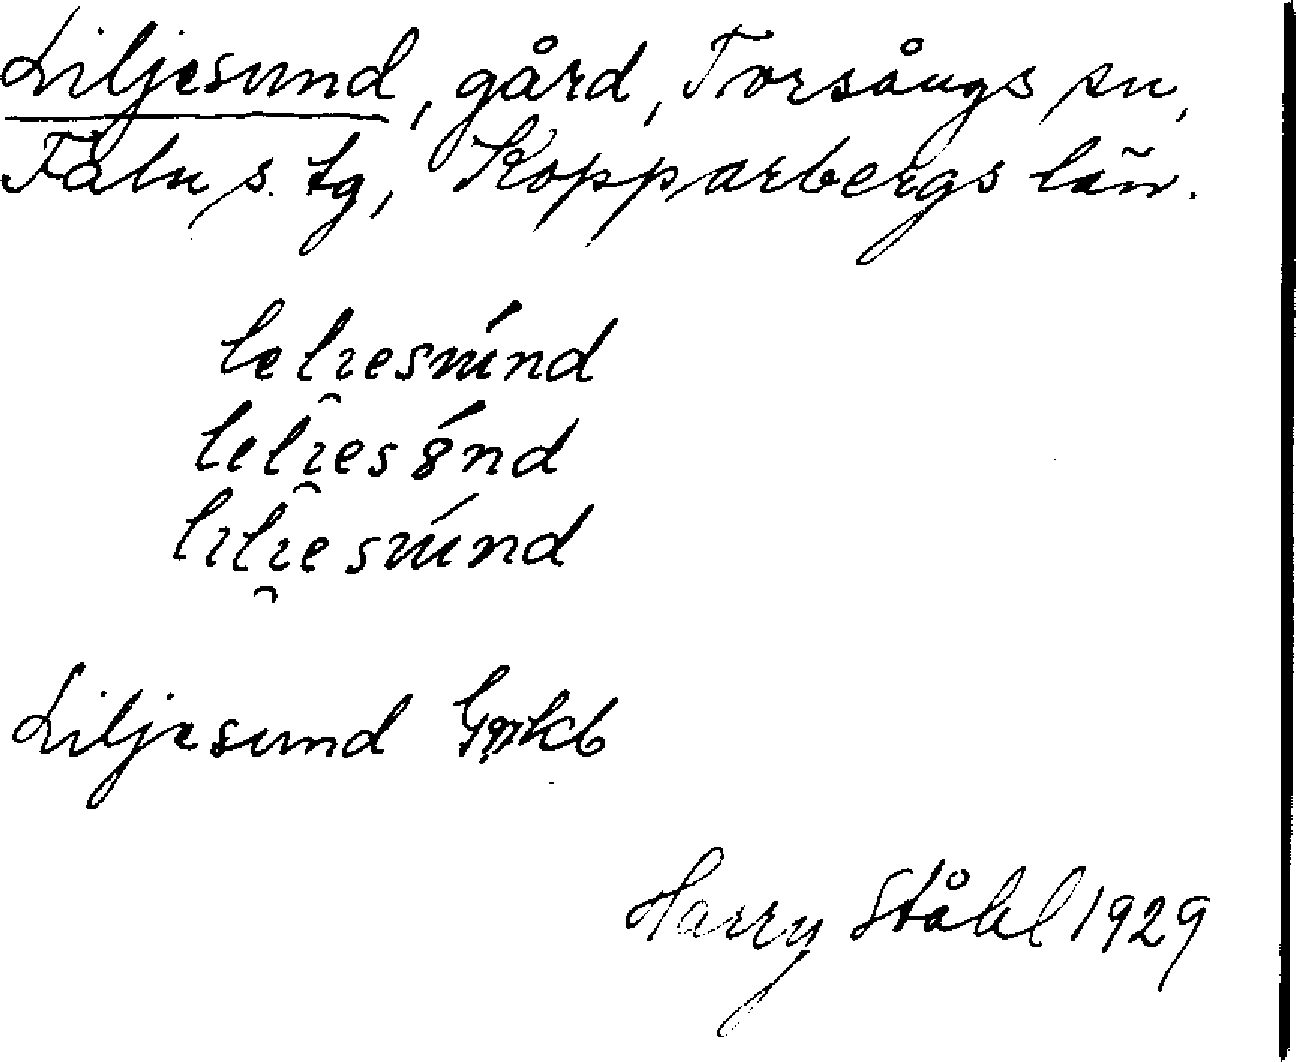 Liljesund, gård, Torsångs sn,
Falu s. tg, Kopparbergs län.
lelı̯esúnd
lelı̯esǿnd
lılı̯esúnd
Liljesund
Harry Ståhl 1929